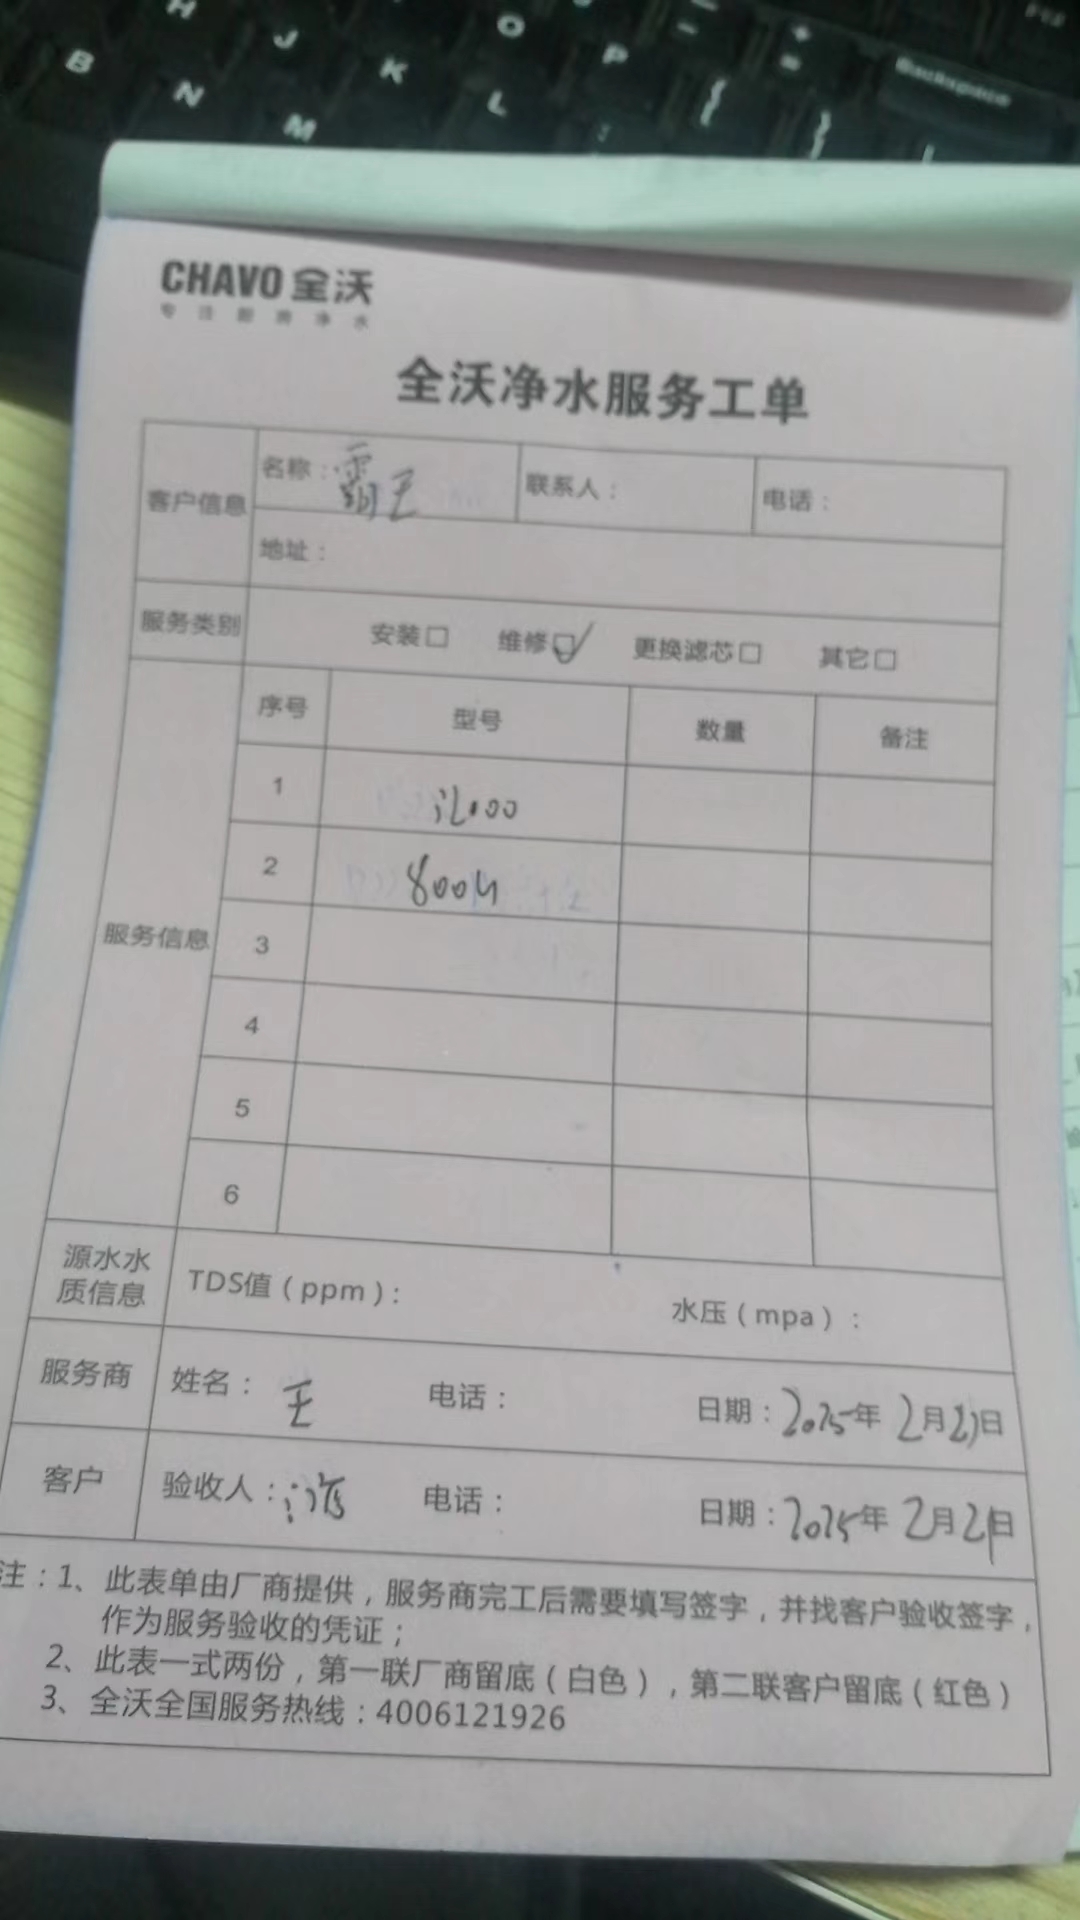 H J K O P
B N M L { }
Backspace
CHAVO 全沃
专注厨房净水
全沃净水服务工单
客户信息 名称：霸王 联系人： 电话：
地址：
服务类别 安装□ 维修☑ 更换滤芯□ 其它□
服务信息 序号 型号 数量 备注
1
2
3
4
5
6
源水水质信息 TDS值（ppm）： 水压（mpa）：
服务商 姓名：王 电话： 日期：2025年2月21日
客户 验收人： 电话： 日期：2025年2月21日
注：1、此表单由厂商提供，服务商完工后需要填写签字，并找客户验收签字，
作为服务验收的凭证；
2、此表一式两份，第一联厂商留底（白色），第二联客户留底（红色）
3、全沃全国服务热线：4006121926